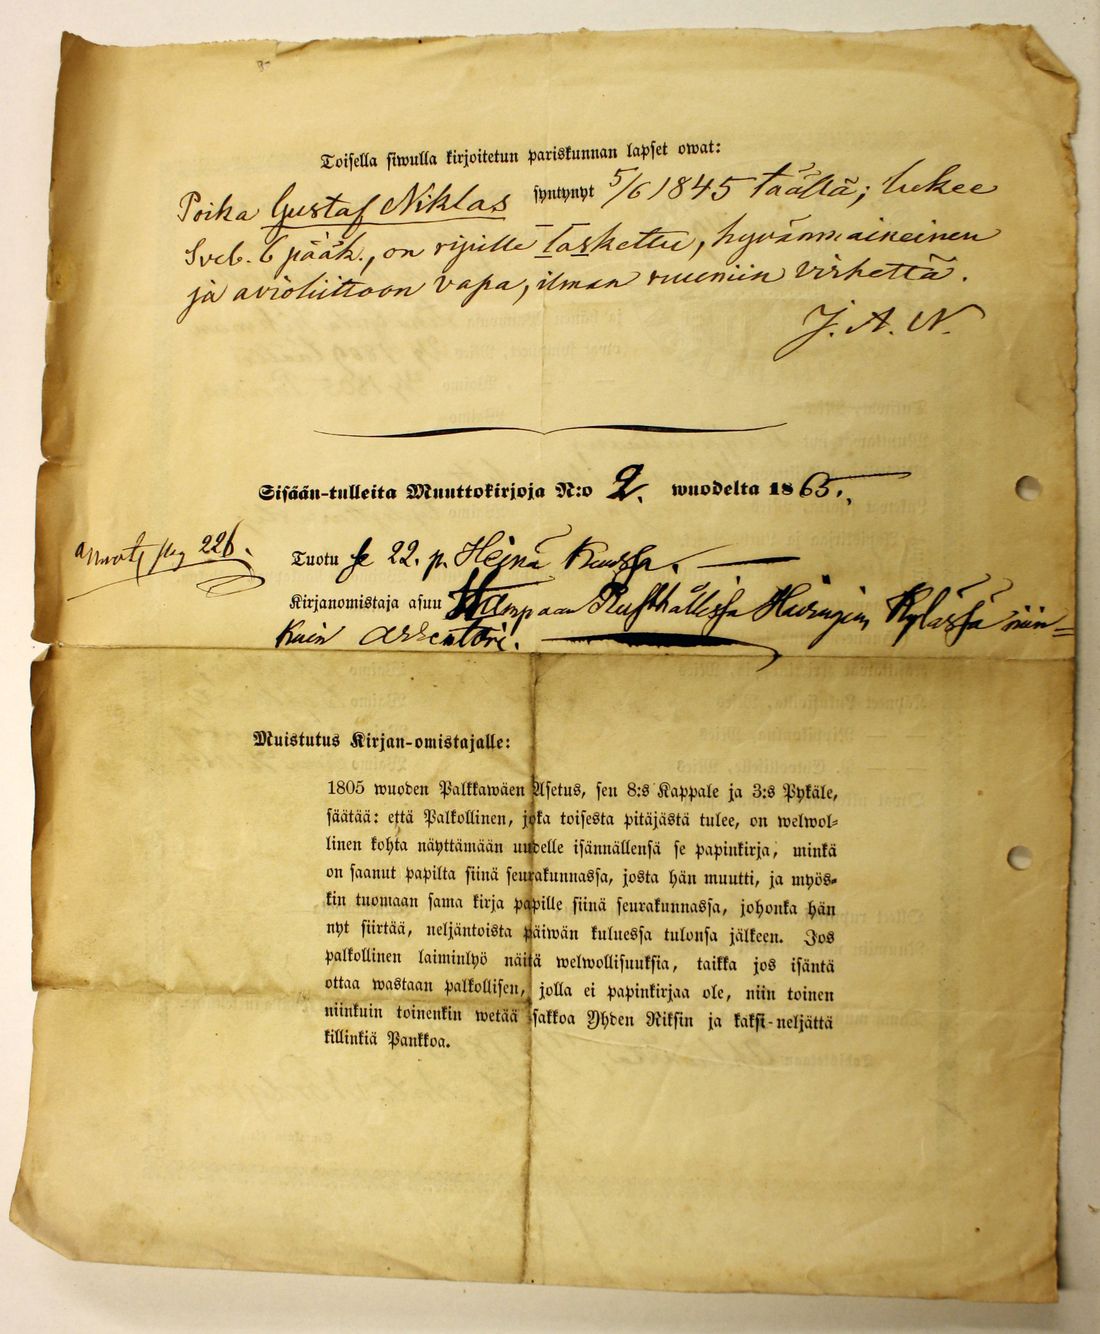 Toisella siwulla kirjoitetun pariskunnan lapset owat:
Poika Gustaf Niklas syntynyt 5/6 1845 täällä; lukee
Sveb. 6 pääk., on ripille laskettu, hyvänmaineinen
ja avioliittoon vapa, ilman ruumiin virhettä.
J. A. N.
Sisään-tulleita Muuttokirjoja N:o 2. wuodelta 1865.
pag 226.
Tuotu se 22. p. Heinä Kuussa.
Kirjanomistaja asuu Rusthållissa Kylässä niin=
kuin arrentori.
Muistutus Kirjan-omistajalle:
1805 wuoden Palkkawäen Asetus, sen 8:s Kappale ja 3:s Pykäle,
säätää: että Palkollinen, joka toisesta pitäjästä tulee, on welwol=
linen kohta näyttämään uudelle isännällensä se papinkirja, minkä
on saanut papilta siinä seurakunnassa, josta hän muutti, ja myös=
kin tuomaan sama kirja papille siinä seurakunnassa, johonka hän
nyt siirtää, neljäntoista päiwän kuluessa tulonsa jälkeen. Jos
palkollinen laiminlyö näitä welwollisuuksia, taikka jos isäntä
ottaa wastaan palkollisen, jolla ei papinkirjaa ole, niin toinen
niinkuin toinenkin wetää sakkoa Yhden Riksin ja kaksi-neljättä
killinkiä Pankkoa.